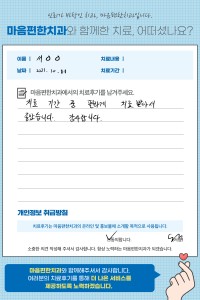 신뢰가 시작되는 치과, 마음편한치과입니다.
마음편한치과와 함께한 치료, 어떠셨나요?
이름 서 O O
치료내용
날짜 2021. 10.
치료기간
마음편한치과에서의 치료후기를 남겨주세요.
치료 기간 중 편하게 치료 받아서
좋았습니다. 감사합니다.
개인정보 취급방침
치료후기는 마음편한치과의 온라인 및 홍보물에 소개할 목적으로 사용됩니다.
동의합니다.
소중한 의견 작성해 주셔서 감사합니다. 항상 노력하는 마음편한치과가 되겠습니다.
마음편한치과와 함께해주셔서 감사합니다.
여러분의 치료후기를 통해 더 나은 서비스를
제공하도록 노력하겠습니다.